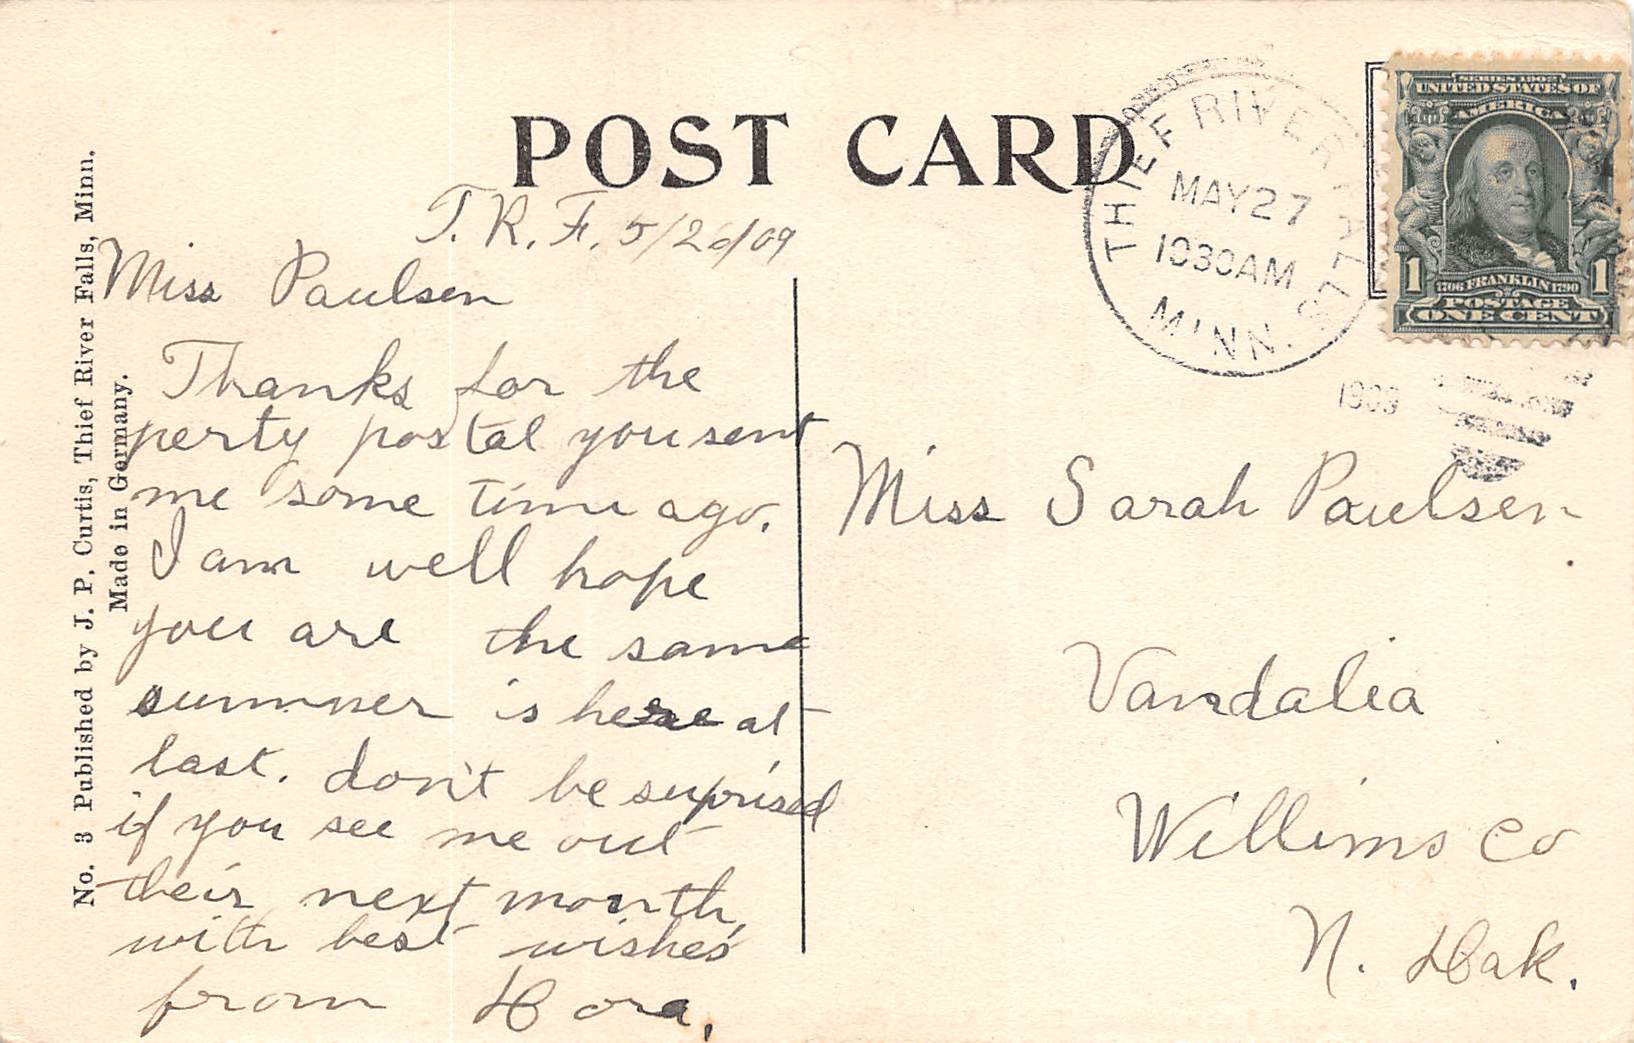 POST CARD
THIEF RIVER FALLS
MAY 27
1030AM
MINN.
1909
SERIES 1902
UNITED STATES OF
AMERICA
1 1
1706 FRANKLIN 1790
POSTAGE
ONE CENT
No. 3 Published by J. P. Curtis, Thief River Falls, Minn.
Made in Germany.
T. R. F. 5/26/09
Miss Paulsen
Thanks for the
perty postal you sent
me some time ago.
I am well hope
you are the same
summer is here at
last. don't be suprised
if you see me out
their next month,
with best wishes
from Dora,
Miss Sarah Paulsen
Vandalia
Willims Co
N. Dak.